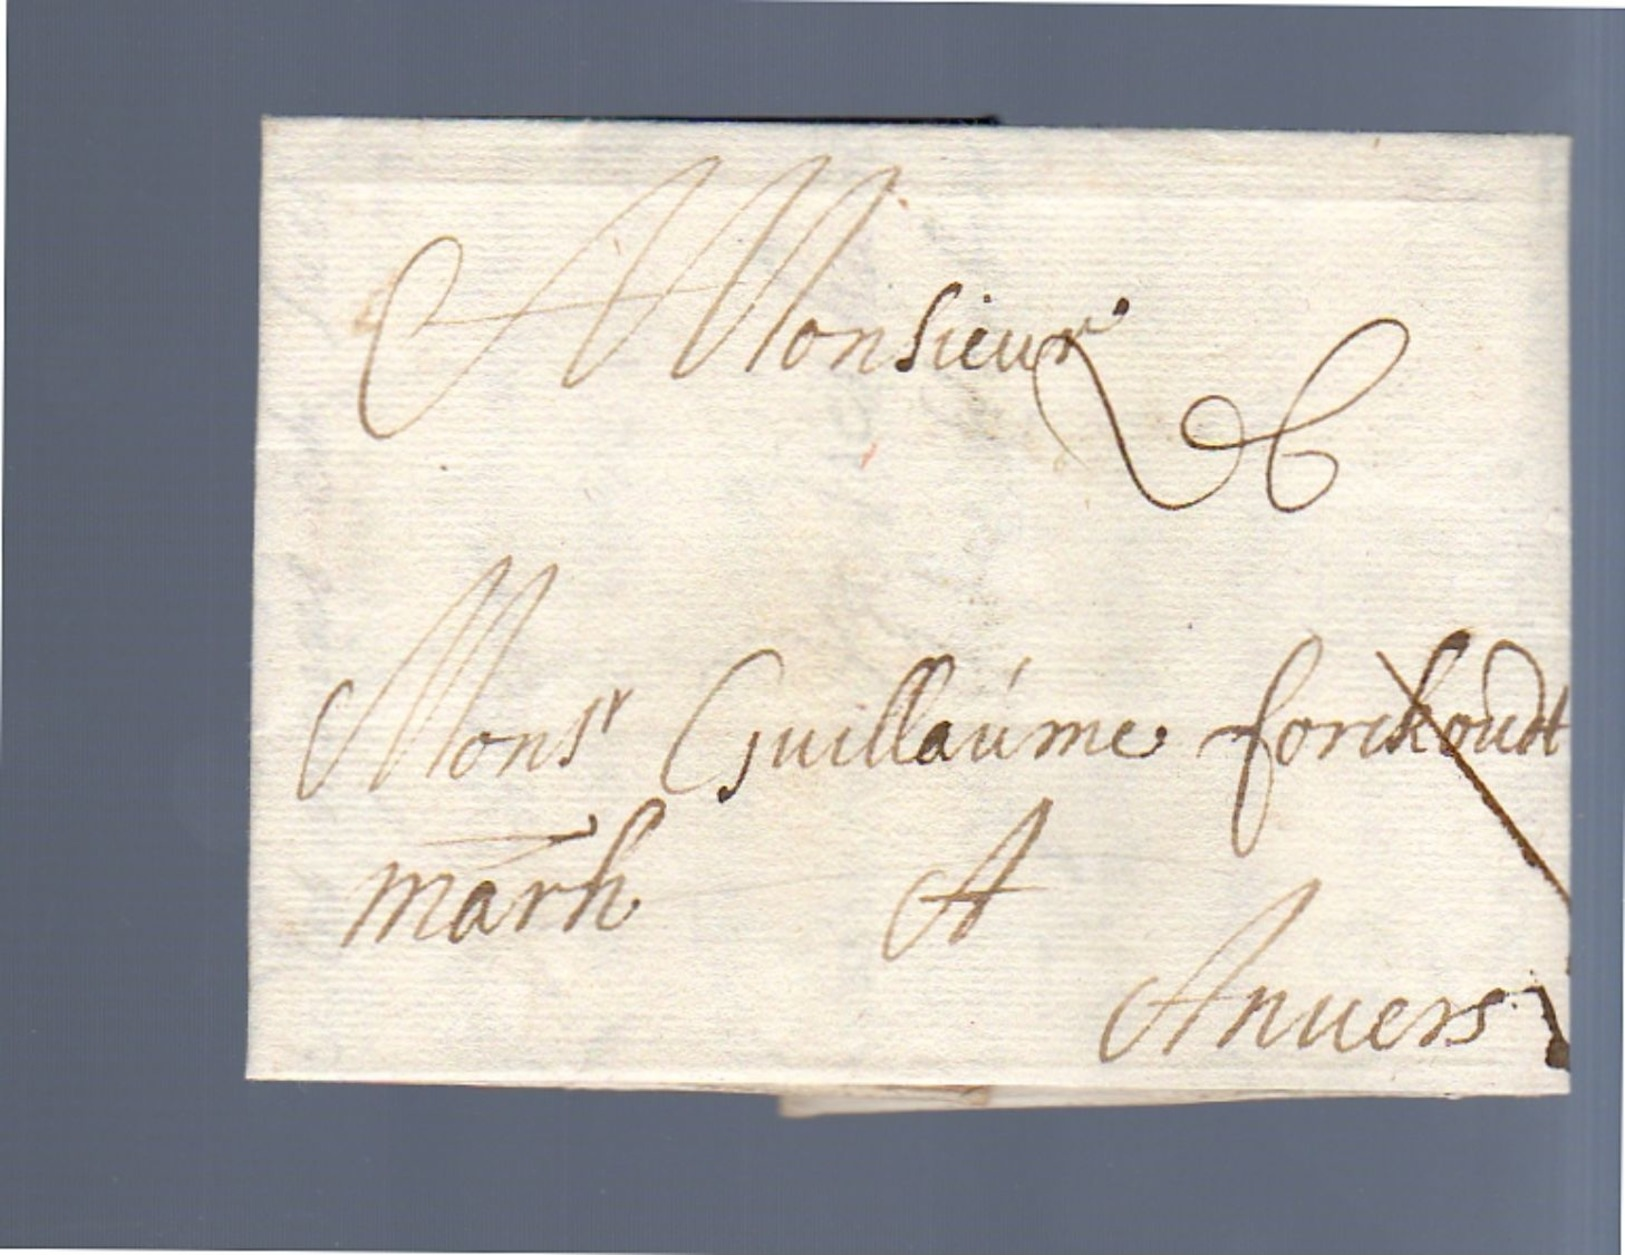 A Monsieur
Monsr Guillaúme forckoudt
marh A
Anvers